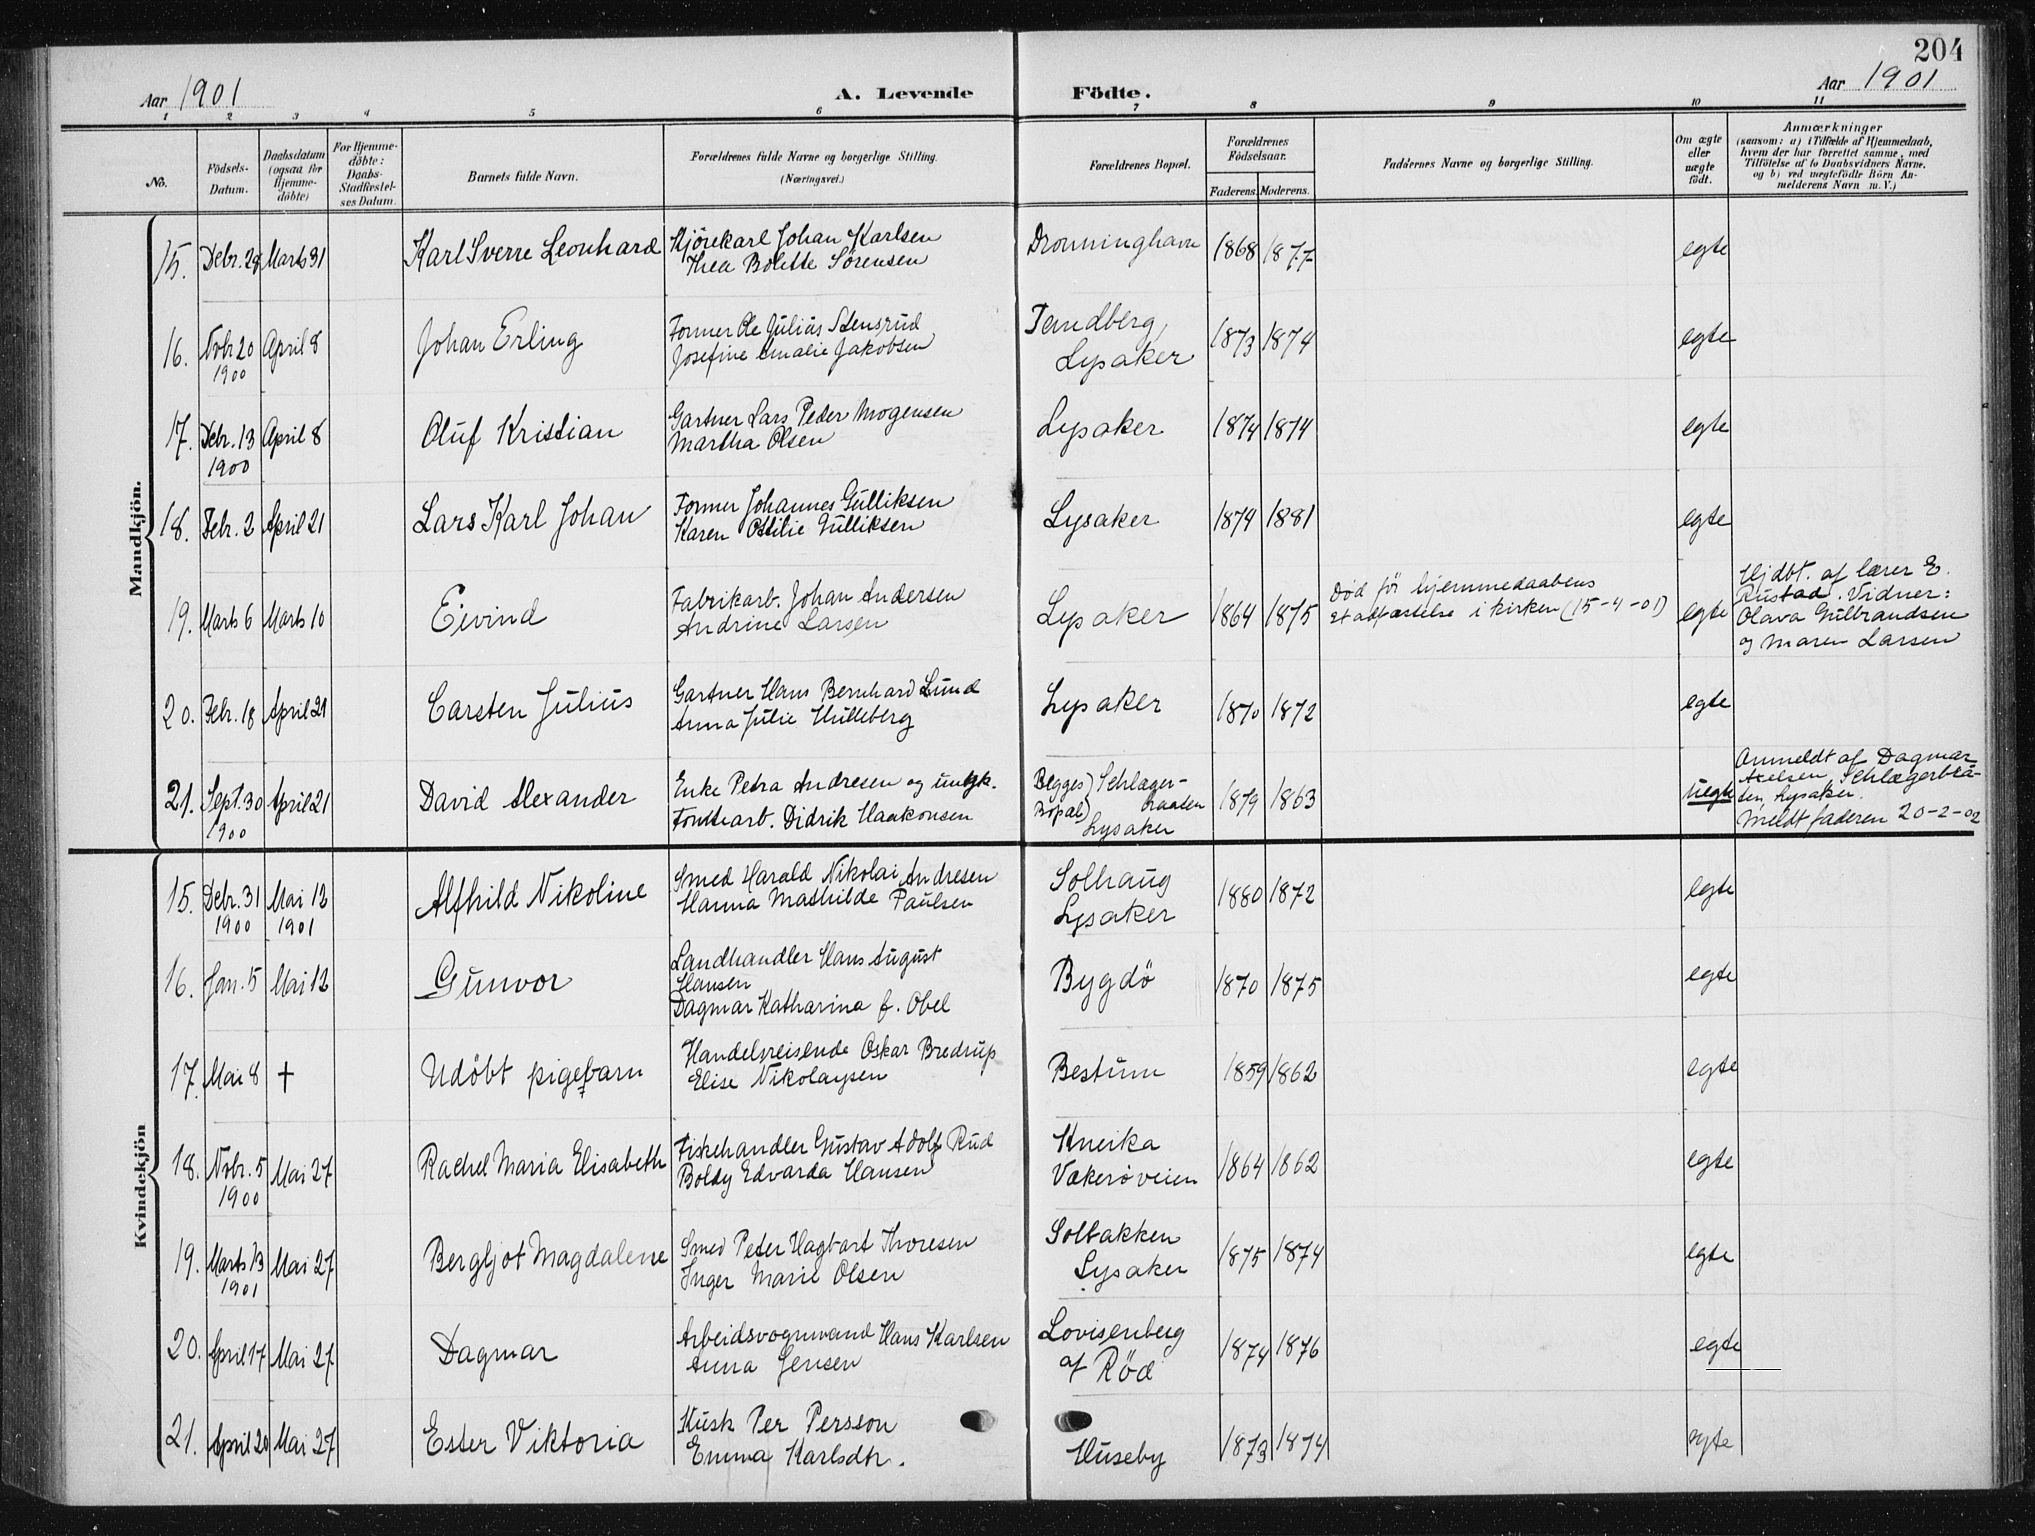 204
Aar 1901
A. Levende
Födte.
Aar 1901
1 2 3 4 5 6 7 8 9 10 11
No.
Födsels-
Datum.
Daabsdatum
(ogsaa for
Hjemme-
döbte)
For Hjemme-
döbte:
Daabs-
Stadfæstel-
ses Datum.
Barnets fulde Navn.
Forældrenes fulde Navne og borgerlige Stilling.
(Næringsvei.)
Forældrenes Bopæl.
Forældrenes
Födselsaar.
Faderens. Moderens.
Faddernes Navne og borgerlige Stilling.
Om ægte
eller
uægte
födt.
Anmærkninger
(saasom: a) i Tilfælde af Hjemmedaab,
hvem der har forrettet samme, med
Tilföielse af to Daabsvidners Navne.
og b) ved uegtefödte Börn An-
melderens Navn m. V.)
Mandkjön.
15. Debr. 28 Marts 31 Karl Sverre Leonhard Kjörekarl Johan Karlsen
Thea Bolette Sörensen
Dronninghavn 1868 1877 egte
16. Nvbr 20
1900
April 8 Johan Erling Former Ole Julius Stensrud
Josefine Amalie Jakobsen
Tandberg,
Lysaker
1873 1874 egte
17. Debr. 13
1900
April 8 Oluf Kristian Gartner Lars Peder Mogensen
Martha Olsen
Lysaker 1874 1874 egte
18. Febr. 2 April 21 Lars Karl Johan Former Johannes Gulliksen
Karen Otilie Gulliksen
Lysaker 1874 1881 egte
19. Marts 6 Marts 10 Eivind Fabrikarb. Johan Andersen
Andrine Larsen
Lysaker 1864 1875 Död för hjemmedaabens
stadfæstelse i kirken (15-4-01)
egte
Hjdbt. af lærer E.
Rustad. Vidner:
Olava Gulbrandsen
og Maren Larsen
20. Febr. 18 April 21 Carsten Julius Gartner Hans Bernhard Lund
Anna Julie Hulleberg
Lysaker 1870 1872 egte
21. Sept. 30
1900
April 21 David Alexander Enke Petra Andresen og ungk.
Tomtearb. Didrik Haakonsen
Begges) Schlager-
Bopæl) baaten
Lysaker
1879 1863 uegte
Anmeldt af Dagmar
Axelsen, Schlægerbaa-
ten, Lysaker.
Meldt faderen 20-2-02
Kvindekjön
15. Debr. 31
1900
Mai 12
1901
Alfhild Nikoline Smed Harald Nikolai Andresen
Hanna Mathilde Paulsen
Solhaug
Lysaker
1880 1872 egte
16. Jan. 5 Mai 12 Gunvor Landhandler Hans August
Hansen
Dagmar Katharina f. Obel
Bygdö 1870 1875 egte
17. Mai 8 † Udöbt pigebarn Handelsreisende Oskar Bredrup
Elise Nikolaysen
Bestum 1859 1862 egte
18. Nvbr. 5
1900
Mai 27 Rachel Maria Elisabeth Fiskehandler Gustav Adolf Rud
Boldy Edvarda Hansen
Kneika
Vækeröveien
1864 1862 egte
19. Marts 13
1901
Mai 27 Bergljot Magdalene Smed Peter Hagbart Thoresen
Inger Marie Olsen
Solbakken
Lysaker
1875 1874 egte
20. April 17 Mai 27 Dagmar Arbeidsvognmand Hans Karlsen
Anna Jensen
Lovisenberg
af Röd
1874 1876 egte
21. April 20 Mai 27 Ester Viktoria Kusk Per Persson
Emma Karlsdtr.
Huseby 1873 1874 egte